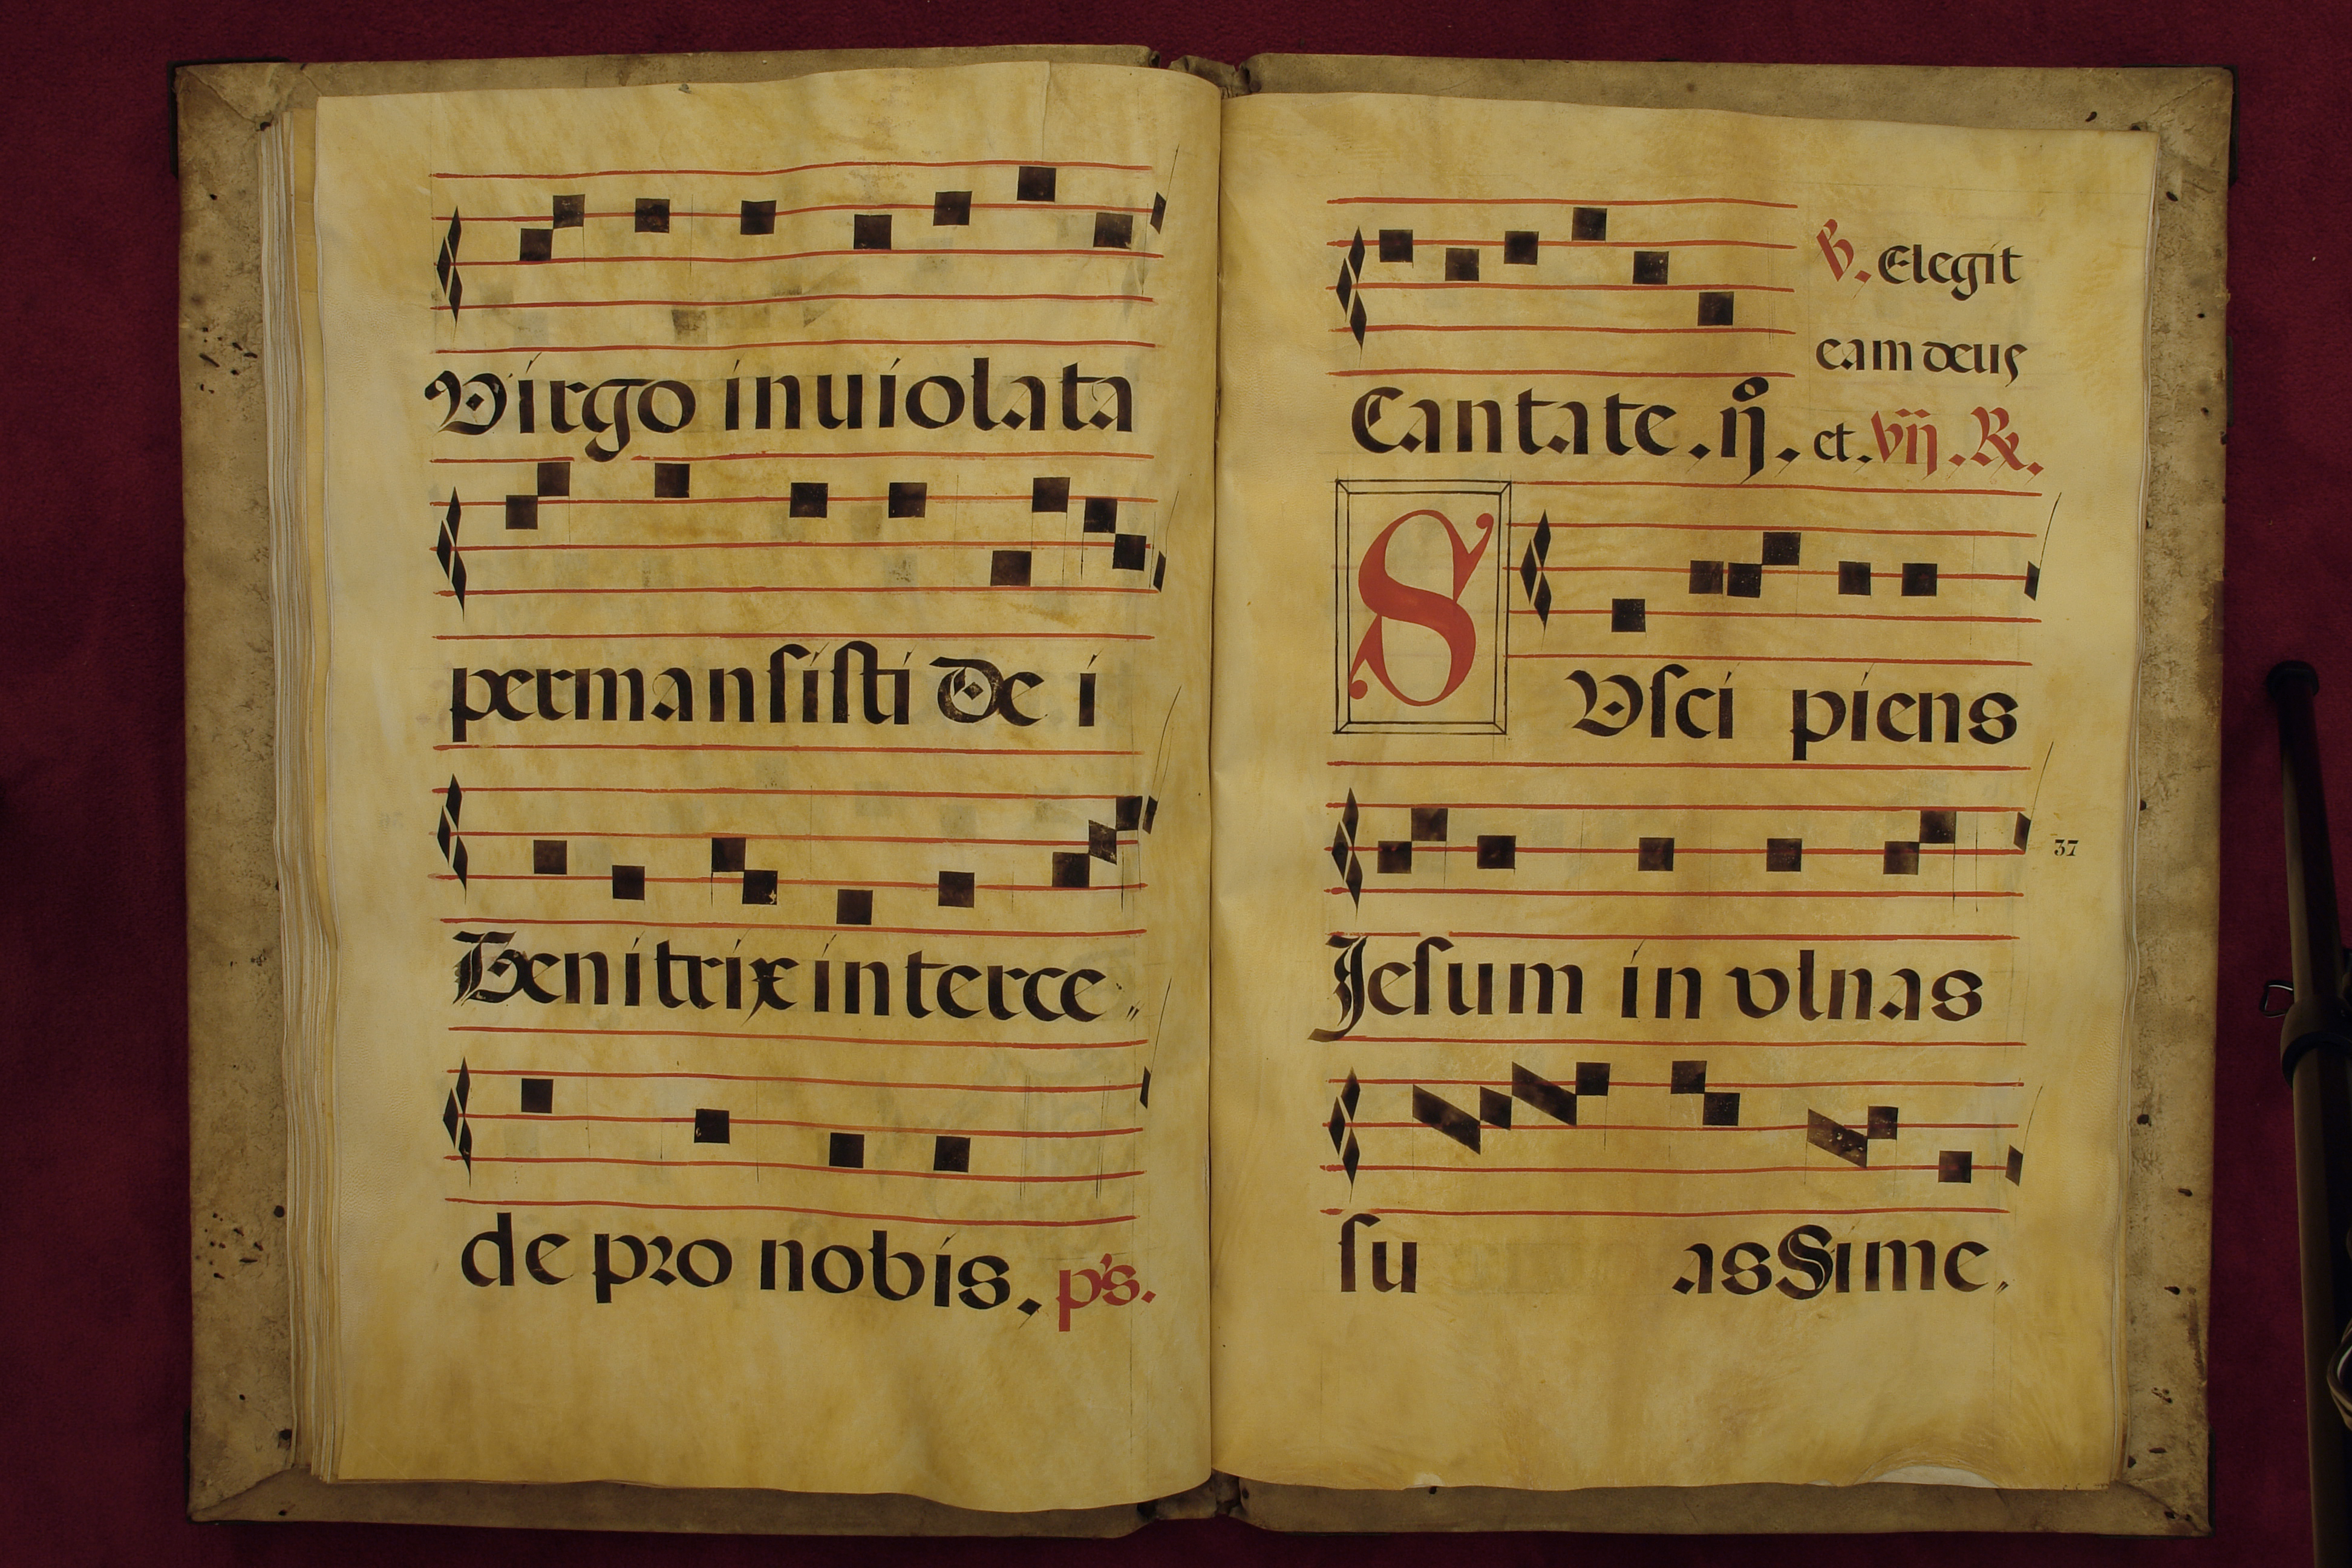 Virgo inuiolata
permansisti De i
Genitrix interce〃
de pro nobis. p's.
℣. Elegit
eam deus
Cantate. ij. et. vij. ℟.
S
Vsci piens
37
Jesum in vlnas
su as Sime.